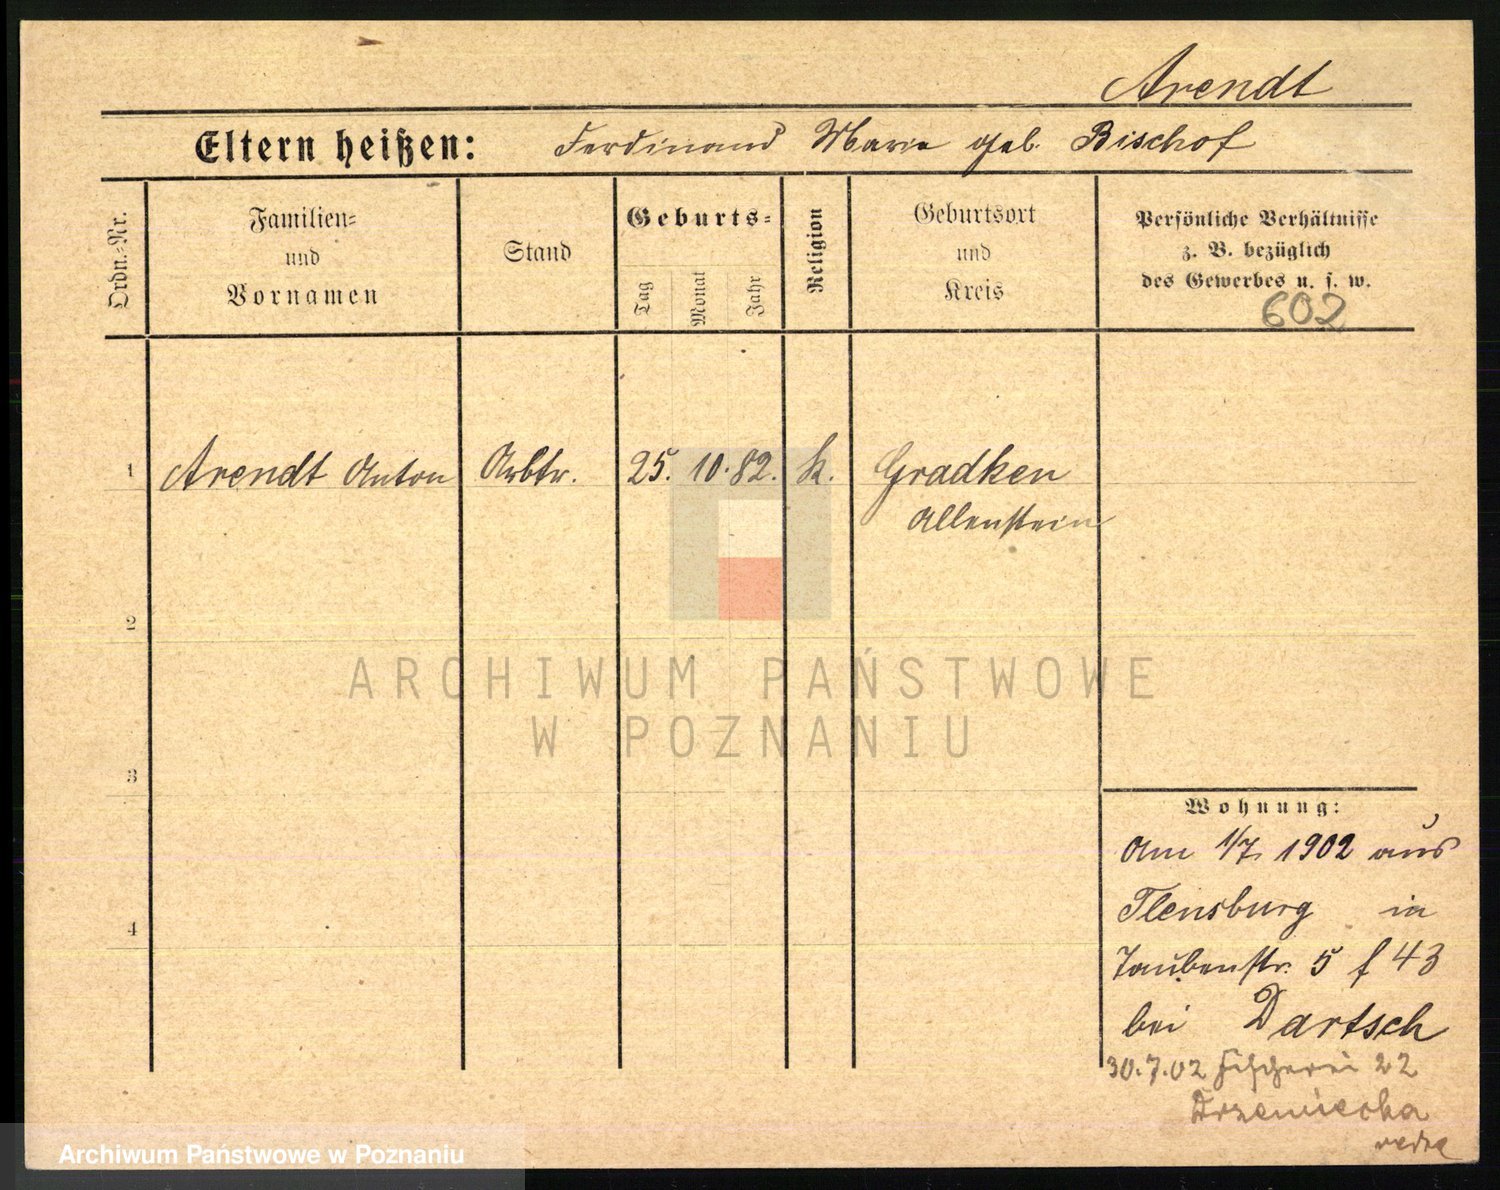 Arendt
Eltern heißen: Ferdinand Marie geb. Bischof
Ordn.-Nr.
Familien-
und
Vornamen
Stand
Geburts-
Tag
Monat
Jahr
Religion
Geburtsort
und
Kreis
Persönliche Verhältnisse
z. B. bezüglich
des Gewerbes u. s. w.
602
1 Arendt Anton Arbtr. 25. 10. 82. k. Gradken
Allenstein
2
ARCHIWUM PAŃSTWOWE
W POZNANIU
3
4
Wohnung:
Am 1/7 1902 aus
Flensburg in
Taubenstr. 5 f 43
bei Dartsch
30.7.02 Fischerei 22
Drzewiecka
Archiwum Państwowe w Poznaniu